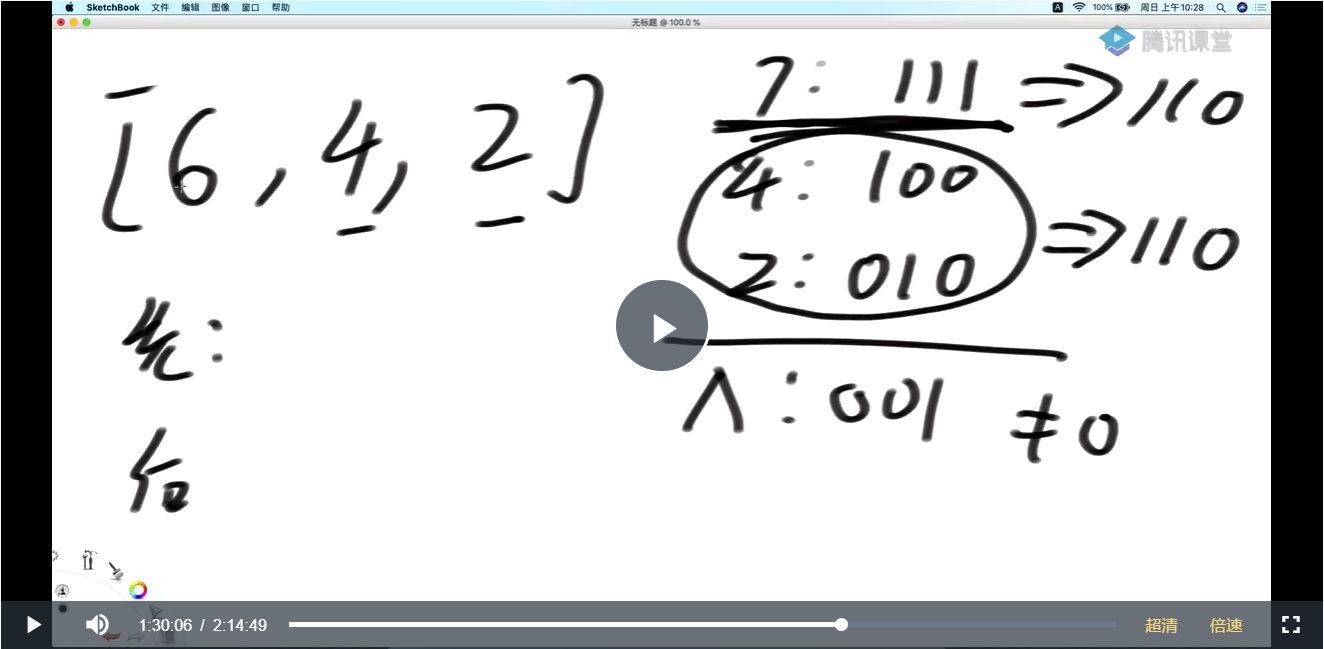 SketchBook 文件 编辑 图像 窗口 帮助
A 100% 周日 上午10:28
无标题 @ 100.0 %
腾讯课堂
[6, 4, 2]
7: 111 ⇒ 110
4: 100
2: 010
⇒ 110
先:
后
∧: 001 ≠ 0
1:30:06 / 2:14:49 超清 倍速